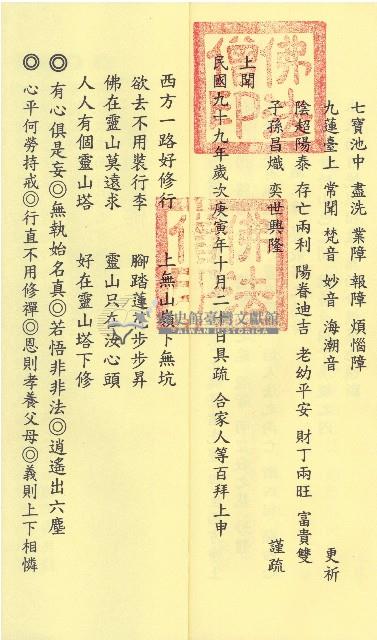 七寶池中 盡洗 業障 報障 煩惱障
九蓮臺上 常聞 梵音 妙音 海潮音 更祈
陰超陽泰 存亡兩利 陽春迪吉 老幼平安 財丁兩旺 富貴雙
子孫昌熾 奕世興隆 謹疏
上聞
民國九十九年歲次庚寅年十月二十日具疏 合家人等百拜上申
西方一路好修行 上無山嶺下無坑
欲去不用裝行李 腳踏蓮花步步昇
佛在靈山莫遠求 靈山只在汝心頭
人人有個靈山塔 好在靈山塔下修
◎ 有心俱是妄◎無執始名真◎若悟非非法◎逍遙出六塵
◎ 心平何勞持戒◎行直不用修禪◎恩則孝養父母◎義則上下相憐
佛法僧印
佛法僧印
史館臺灣文獻館
TAIWAN HISTORICA